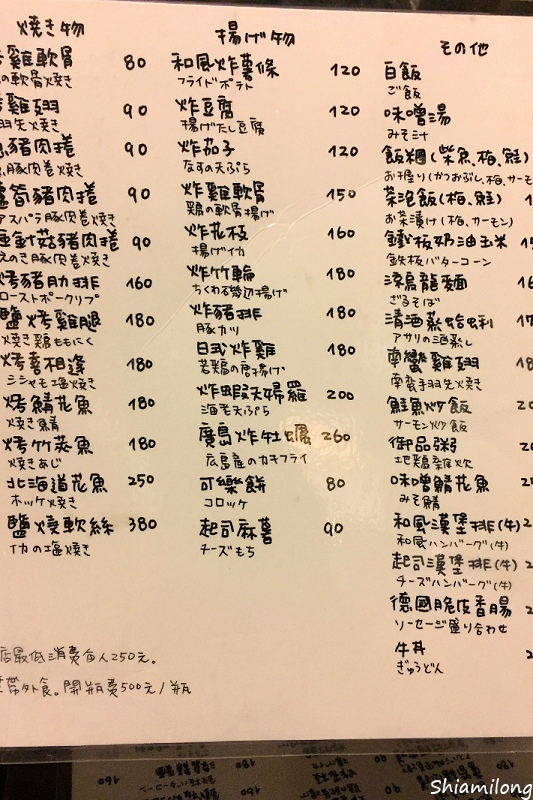 焼き物
雞軟骨 80
の軟骨焼き
雞翅 90
羽先焼き
豬肉捲 90
豚肉巻焼き
蘆筍豬肉捲 90
アスパラ豚肉巻焼き
金針菇豬肉捲 90
えのき豚肉巻焼き
烤豬肋排 160
ローストポークリブ
鹽烤雞腿 180
焼き鶏ももにく
烤喜相逢 180
シシャモ塩焼き
烤鯖花魚 180
焼き鯖
烤竹莢魚 180
焼きあじ
北海道花魚 250
ホッケ焼き
鹽燒軟絲 380
イカの塩焼き
店最低消費每人250元。
帶外食。開瓶費500元/瓶
揚げ物
和風炸薯條 120
フライドポテト
炸豆腐 120
揚げだし豆腐
炸茄子 120
なすの天ぷら
炸雞軟骨 150
鶏の軟骨揚げ
炸花枝 160
揚げイカ
炸竹輪 180
ちくわ磯辺揚げ
炸豬排 180
豚カツ
日式炸雞 180
若鶏の唐揚げ
炸蝦天婦羅 200
海老天ぷら
廣島炸牡蠣 260
広島産のカキフライ
可樂餅 80
コロッケ
起司麻薯 90
チーズもち
その他
白飯
ご飯
味噌湯
みそ汁
飯糰(柴魚,梅,鮭)
お握り(かつおぶし,梅,サーモ
茶泡飯(梅,鮭)
お茶漬け(梅,サーモン)
鐵板奶油玉米
鉄板バターコーン
涼烏龍麵
ざるそば
清酒蒸蛤蜊
アサリの酒蒸し
南蠻雞翅
南蛮手羽先焼き
鮭魚炒飯
サーモン炒飯
御品粥
地鶏雑炊
味噌鯖花魚
みそ鯖
和風漢堡排(牛)
和風ハンバーグ(牛)
起司漢堡排(牛)
チーズハンバーグ(牛)
德國脆皮香腸
ソーセージ盛り合わせ
牛丼
ぎゅうどん
Shiamilong